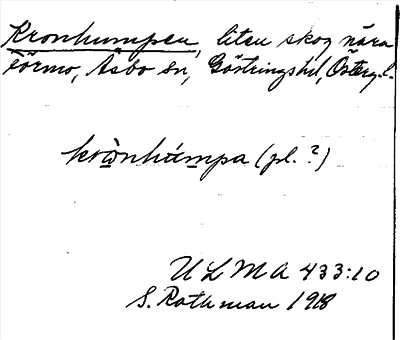 Kronhumpen, liten skog nära
Törmo, Åsbo sn, Göstringshd, Österg.l.
krònhúmpa (pl. ?)
ULMA 433:10
S. Rothman 1918